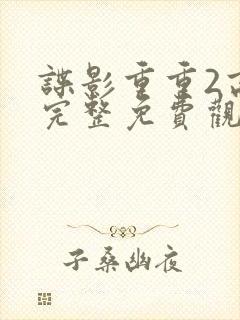 諜影重重2
完整免費觀
子桑幽夜